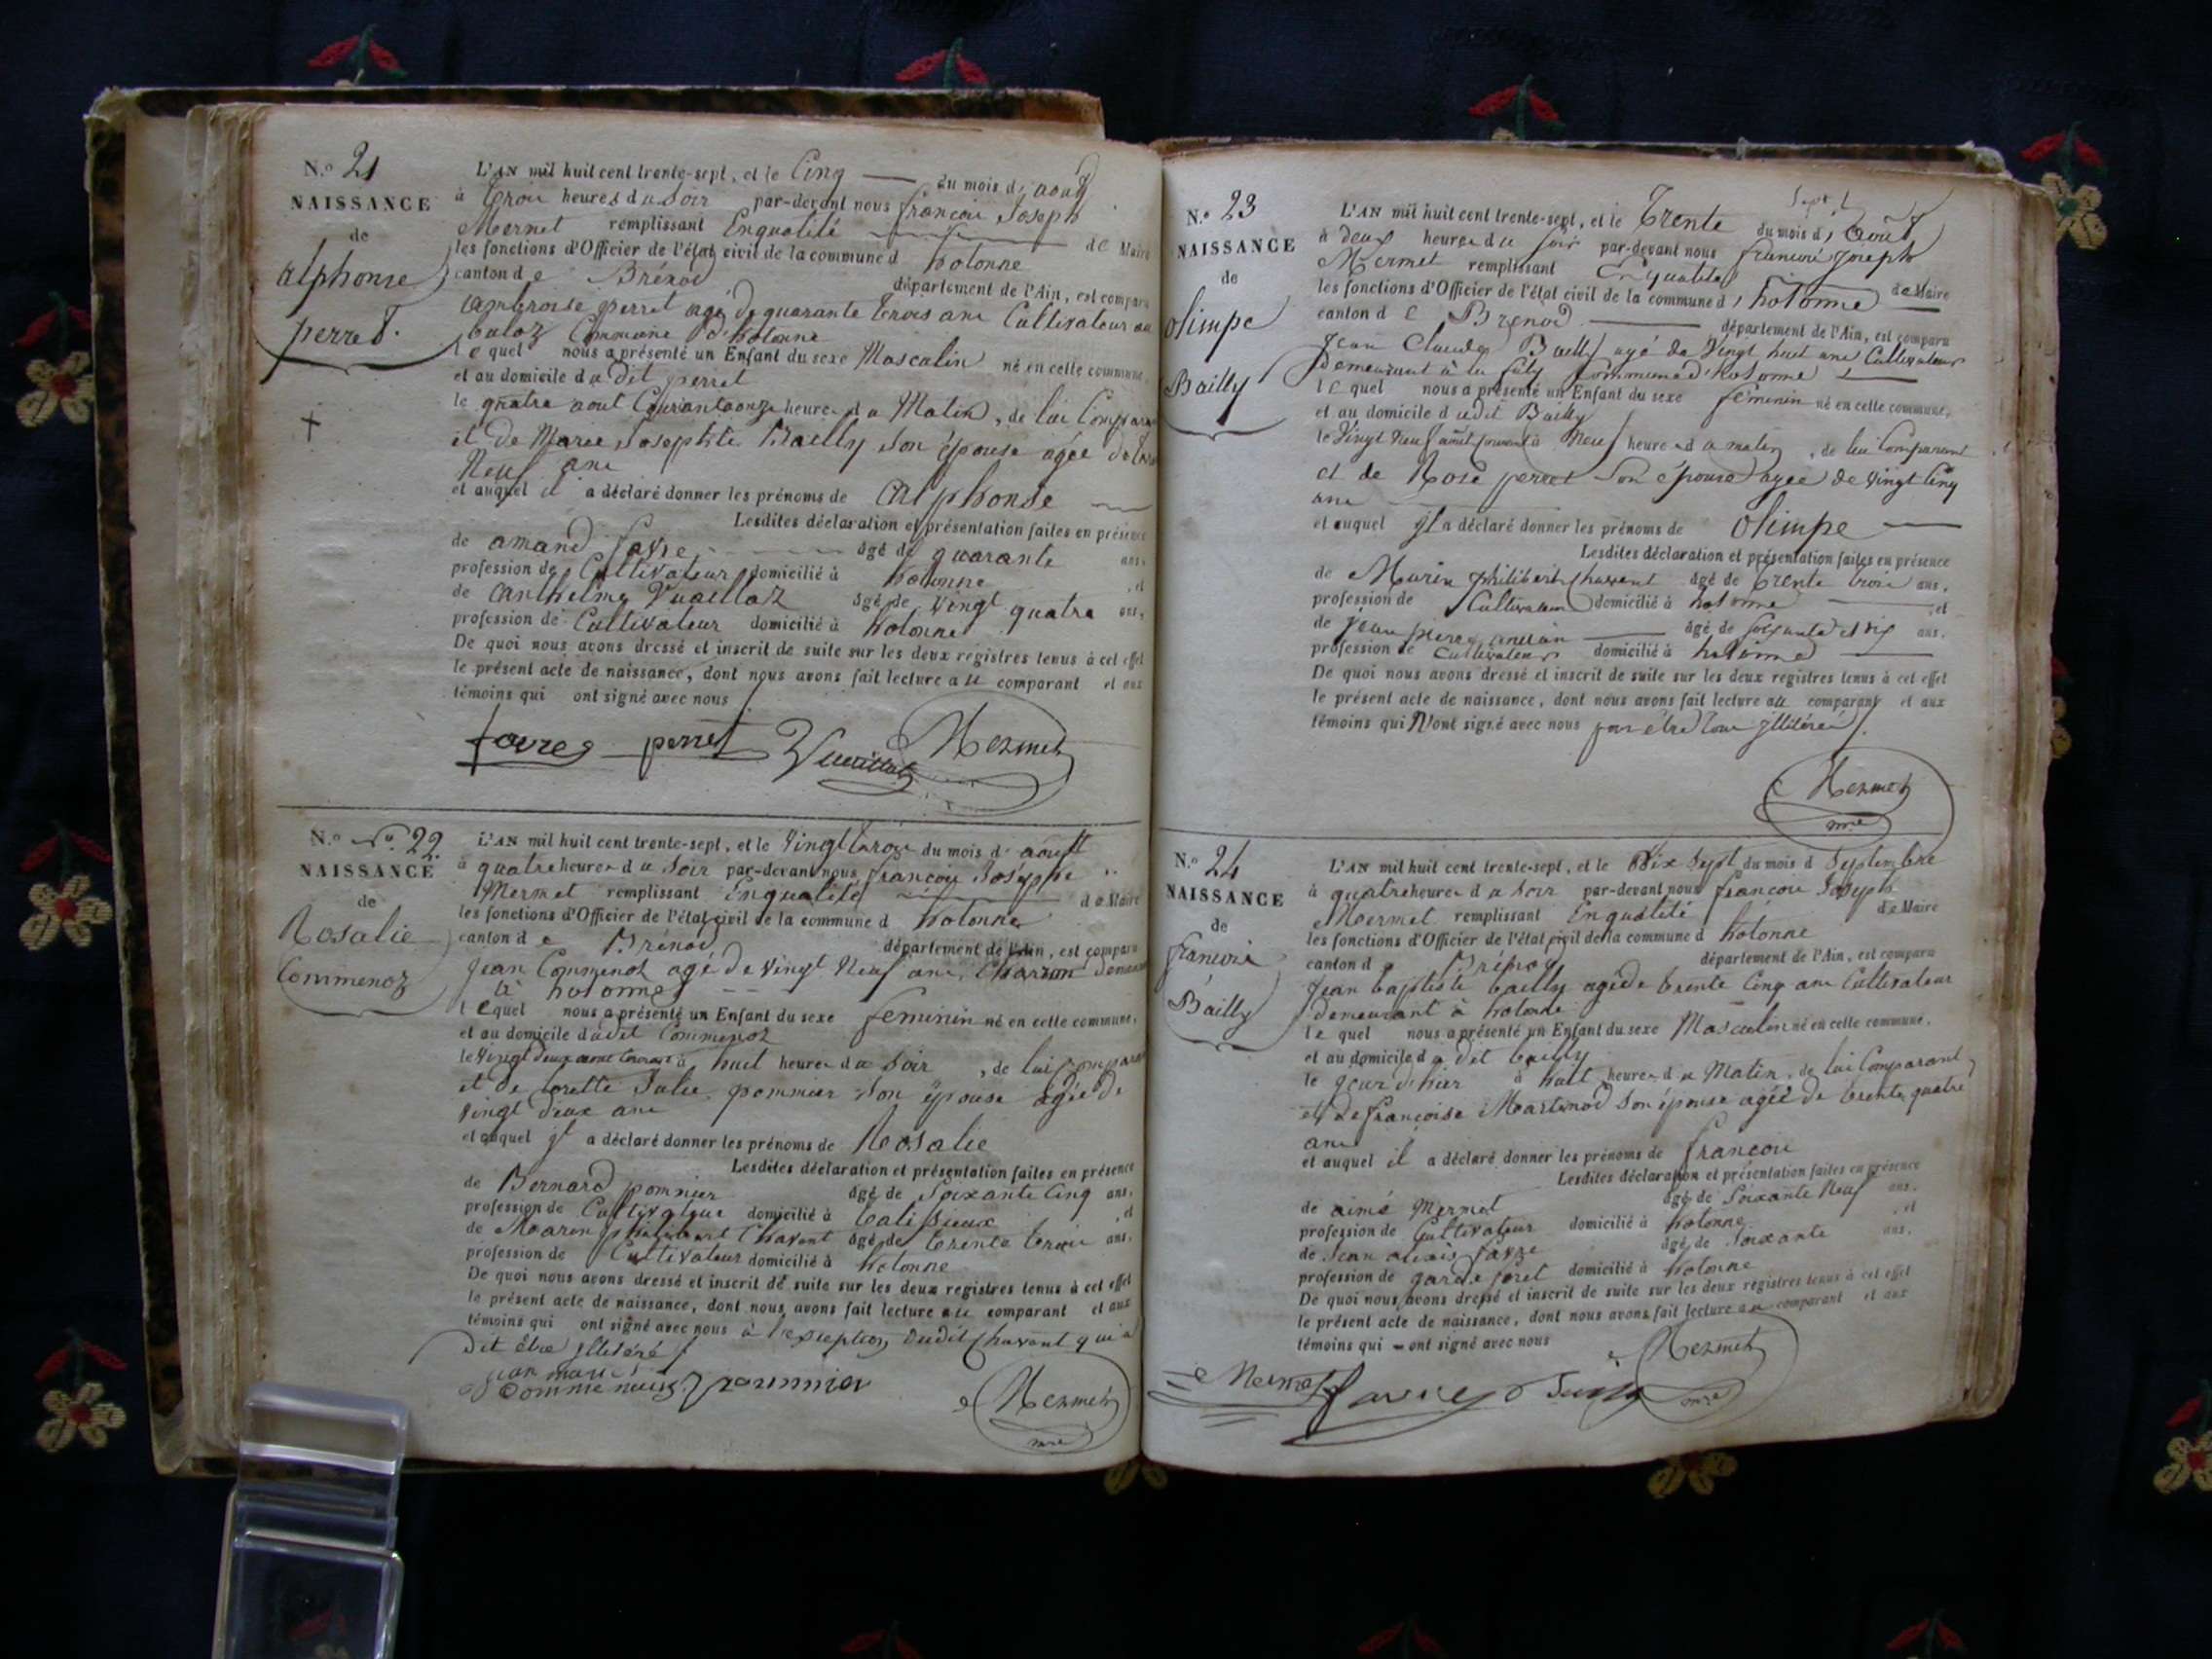 N.o 21
NAISSANCE
de
alphonse
perret.
L'AN mil huit cent trente-sept, et le Cinq du mois d' aout
à trois heures du Soir par-devant nous françois Joseph
Mermet remplissant Enqualité de Maire
les fonctions d'Officier de l'état civil de la commune d' hotonne
canton de Brénod département de l'Ain, est comparu
ambroise perret agé de quarante trois ans Cultivateur au
Commune d'hotonne
lequel nous a présenté un Enfant du sexe Masculin né en cette commune,
et au domicile du dit perret
le quatre aout Courant a onze heures du Matin, de lui Comparant
et de Marie Josephte Bailly son épouse agée de
Neuf ans
et auquel il a déclaré donner les prénoms de Alphonse
Lesdites déclaration et présentation faites en présence
de amand favre âgé de quarante ans,
profession de Cultivateur domicilié à hotonne, et
de Anthelme Vuaillaz âgé de vingt quatre ans,
profession de Cultivateur domicilié à hotonne
De quoi nous avons dressé et inscrit de suite sur les deux registres tenus à cet effet
le présent acte de naissance, dont nous avons fait lecture au comparant et aux
témoins qui ont signé avec nous
favre perret Mermet
N.o No. 22
NAISSANCE
de
Rosalie
Commenoz
L'AN mil huit cent trente-sept, et le Vingt trois du mois d' aoust
à quatre heures du Soir par-devant nous françois Josephe
Mermet remplissant Enqualité de Maire
les fonctions d'Officier de l'état civil de la commune d hotonne
canton de Brénod département de l'Ain, est comparu
Jean Commenoz agé de vingt Neuf ans, Charron
à hotonne
lequel nous a présenté un Enfant du sexe feminin né en cette commune,
et au domicile dudit Commenoz
le vingt deux aout Courant à huit heures du Soir, de lui Comparant
et de Julie pommier son épouse agée de
vingt deux ans
et auquel il a déclaré donner les prénoms de Rosalie
Lesdites déclaration et présentation faites en présence
de Bernard pommier âgé de Soixante Cinq ans,
profession de Cultivateur domicilié à, et
de Marin philibert Chavent âgé de trente trois ans,
profession de Cultivateur domicilié à hotonne
De quoi nous avons dressé et inscrit de suite sur les deux registres tenus à cet effet
le présent acte de naissance, dont nous avons fait lecture au comparant et aux
témoins qui ont signé avec nous à l'exception dudit Chavent qui a
dit être illitéré
pommier
Mermet
mre
N.o 23
NAISSANCE
de
Olimpe
Bailly
Sept
L'AN mil huit cent trente-sept, et le Trente du mois d' Août
à deux heures du soir par-devant nous françois joseph
Mermet remplissant En qualité de Maire
les fonctions d'Officier de l'état civil de la commune d' hotonne
canton de Brenod département de l'Ain, est comparu
Jean Claude Bailly agé de Vingt huit ans Cultivateur
Demeurant à la commune d'hotonne
lequel nous a présenté un Enfant du sexe féminin né en cette commune,
et au domicile dudit Bailly
le Vingt Neuf à Neuf heures du matin, de lui Comparant
et de Rose perret Son épouse agée de vingt Cinq
ans
et auquel il a déclaré donner les prénoms de Olimpe
Lesdites déclaration et présentation faites en présence
de Marin philibert Chavent âgé de trente trois ans,
profession de Cultivateur domicilié à hotonne, et
de jean pierre âgé de soixante et dix ans,
profession de Cultivateur domicilié à hotonne
De quoi nous avons dressé et inscrit de suite sur les deux registres tenus à cet effet
le présent acte de naissance, dont nous avons fait lecture au comparant et aux
témoins qui N'ont signé avec nous pour être tous illitérés
Mermet
mre
N.o 24
NAISSANCE
de
françois
Bailly
L'AN mil huit cent trente-sept, et le Dix Sept du mois d Septembre
à quatre heures du Soir par-devant nous françois Joseph
Mermet remplissant Enqualité de Maire
les fonctions d'Officier de l'état civil de la commune d hotonne
canton de Brénod département de l'Ain, est comparu
Jean baptiste bailly agé de trente Cinq ans Cultivateur
demeurant à hotonne
lequel nous a présenté un Enfant du sexe Masculin né en cette commune,
et au domicile du dit bailly
le jour d'hier à huit heures du Matin, de lui Comparant,
et de françoise Martinod son épouse agée de trente quatre
ans
et auquel il a déclaré donner les prénoms de françois
Lesdites déclaration et présentation faites en présence
de aimé Mermet âgé de Soixante Neuf ans,
profession de Cultivateur domicilié à hotonne, et
de Jean alexis favre âgé de Soixante ans,
profession de garde foret domicilié à hotonne
De quoi nous avons dressé et inscrit de suite sur les deux registres tenus à cet effet
le présent acte de naissance, dont nous avons fait lecture au comparant et aux
témoins qui ont signé avec nous
Mermet favre Mermet
mre